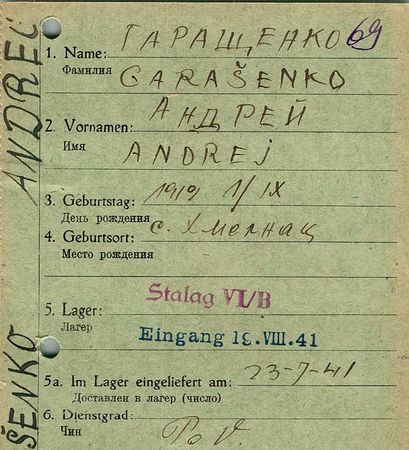 ANDREJ
ŠENKO
1. Name: ГАРАЩЕНКО 69
Фамилия GARAŠENKO
2. Vornamen: АНДРЕЙ
Имя ANDREJ
3. Geburtstag: 1919 1/IX
День рождения
4. Geburtsort: с. Хмелнац
Место рождения
5. Lager: Stalag VI/B
Лагер Eingang 19.VIII.41
5a. Im Lager eingeliefert am: 23-7-41
Доставлен в лагер (число)
6. Dienstgrad:
Чин